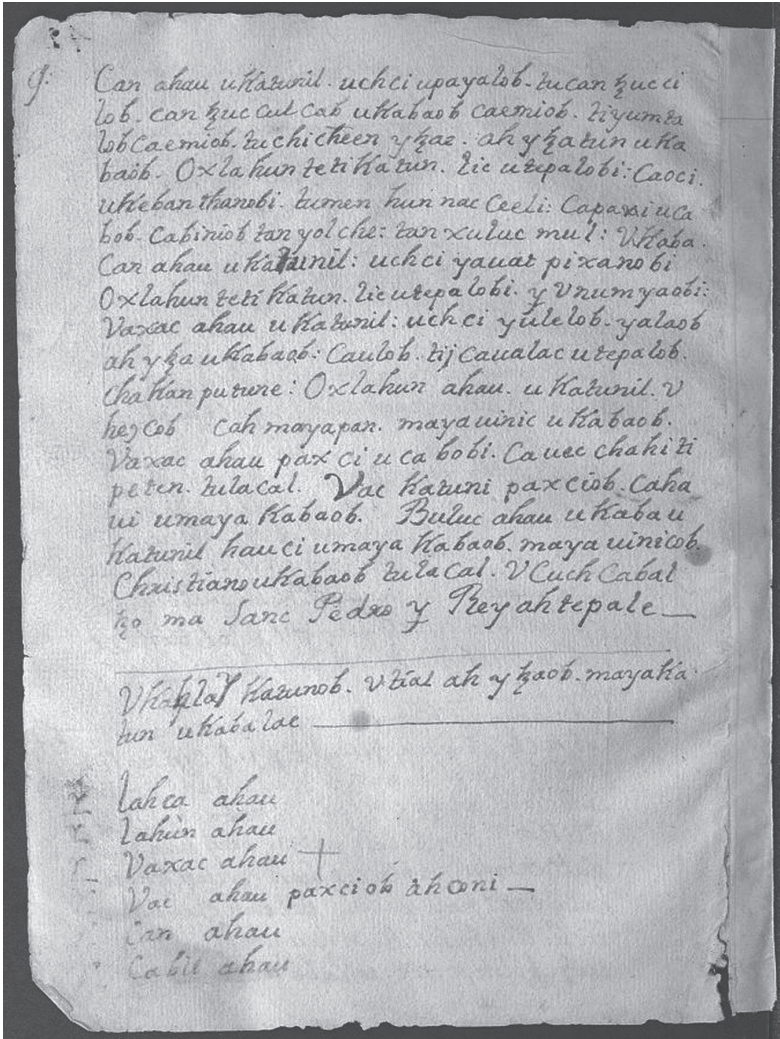 9.
Can ahau u Katunil. uchci upayalob. tucan ꜩucci
lob. can ꜩuc cul cab uKabaob caemiob. tiyumta
lob caemiob. tuchicheen yꜩae. ah yꜩatun uKa
baob. Oxlahun teti Katun. lic utepalobi: Caoci.
uKeban thanobi. tumen hunnac Ceeli: Capaxi uca
bob. Cabiniob tan yol che: tan xuluc mul: UKaba.
Can ahau uKatunil: uchci yauat pixanobi
Oxlahun teti Katun. lic utepalobi. y Vnumyaobi:
Vaxac ahau u Katunil: uchci yulelob. yalaob
ah yꜩa uKabaob: Caulob. tij caualac utepalob.
Chakanputune: Oxlahun ahau. u Katunil. V
heꜩcob cah mayapan. maya uinic uKabaob.
Vaxac ahau paxci u cabobi. Ca uec chahi ti
peten. tulacal. Vac Katuni paxciob. Caha
ui umaya Kabaob. Buluc ahau uKaba u
Katunil hauci umaya Kabaob. maya uinicob.
Christiano uKabaob tulacal. V Cuch Cabal
ꜩo ma Sanc Pedro y Rey ahtepale
VKahlay Katunob. Vtial ah yꜩaob. mayaKa
tun uKaba lae
lahca ahau
lahun ahau
Vaxac ahau
Vac ahau paxciob ahconi
Can ahau
Cabil ahau